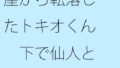 崖から転落し
たトキオくん
下で仙人と